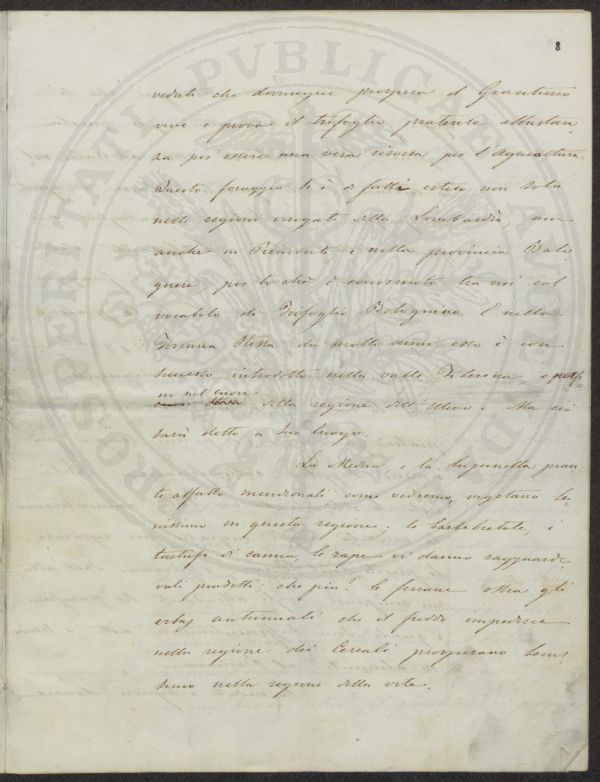 8
veduti che dovunque prospera il Granturco
vive e prova il trifoglio pratense abbastan
za per essere una vera risorsa per l'Agricoltura
Questo foraggio si è di fatti esteso non solo
nelle regioni irrigate della Lombardia, ma
anche in Piemonte e nella provincia Bolo
gnese, per lo che è conosciuto tra noi col
vocabolo di Trifoglio Bolognino. E nella
Toscana stessa da molti anni esso è con
successo introdotto nella valle Tiberina e perf-
in nel cuore
della regione dell'Ulivo. Ma ciò
sarà detto a suo luogo.
La Medica e la lupinella pian
te affatto meridionali come vedremo, vegetano be
nissimo in questa regione; le barbebietole, i
tartufi di canna, le rape vi danno ragguarde
voli prodotti; che più? le ferrane ossia gli
erbaj autunnali che il freddo impedisce
nella regione dei Cereali prosperano benis
simo nella regione della vite.
PROSPERITATI PVBLICAE AVGENDAE